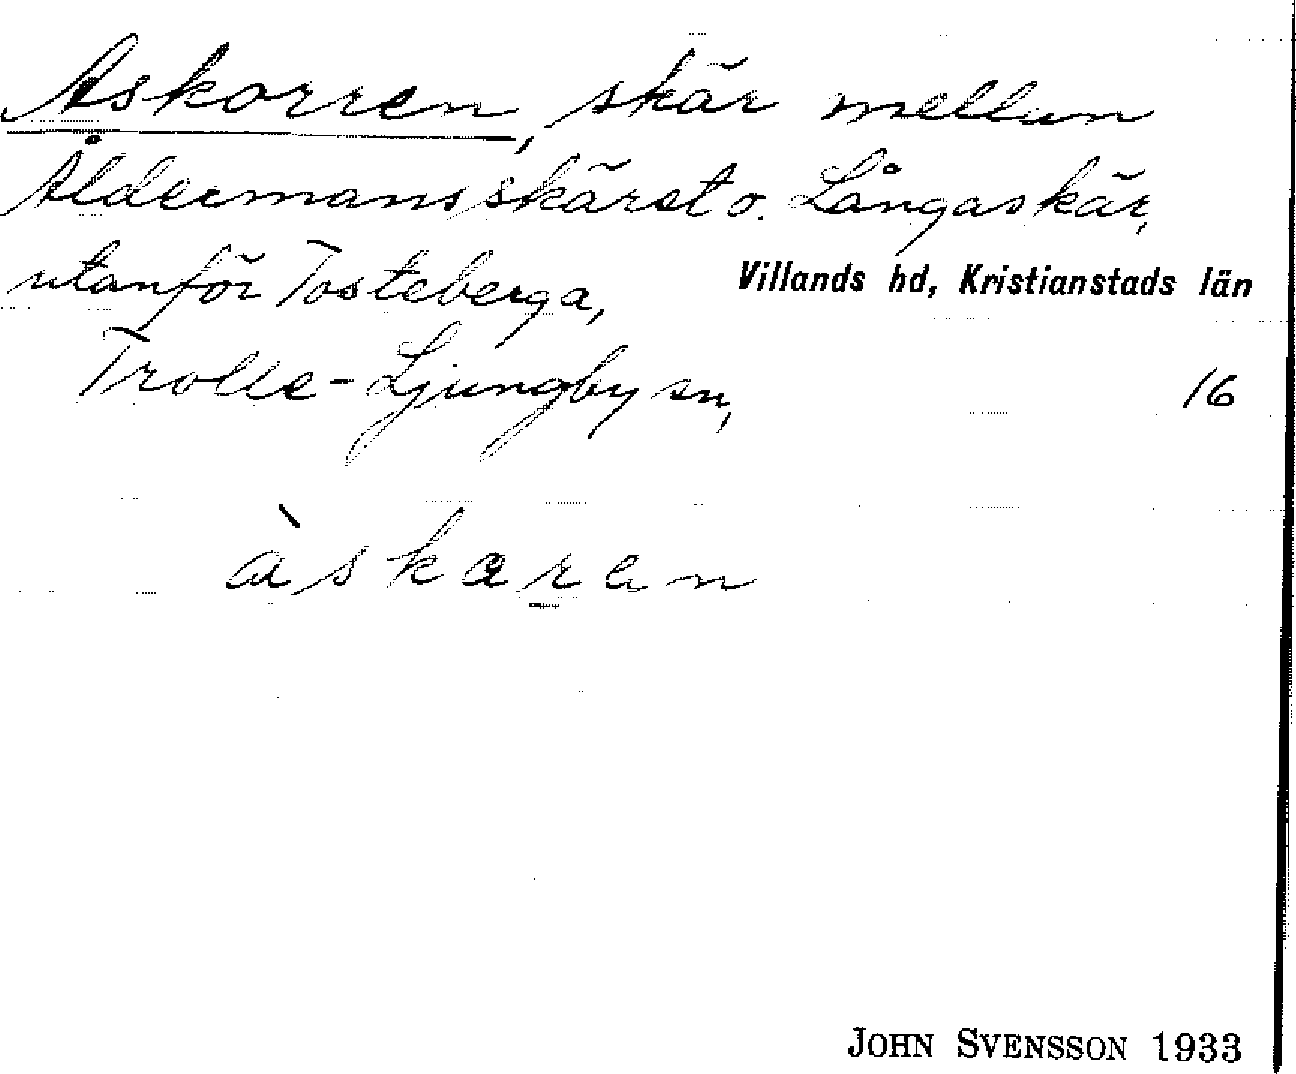 Askorren, skär mellan
Åldermansskäret o. Långaskär,
utanför Tosteberga,
Villands hd, Kristianstads län
Trolle-Ljungby sn,
16
àskæren
JOHN SVENSSON 1933